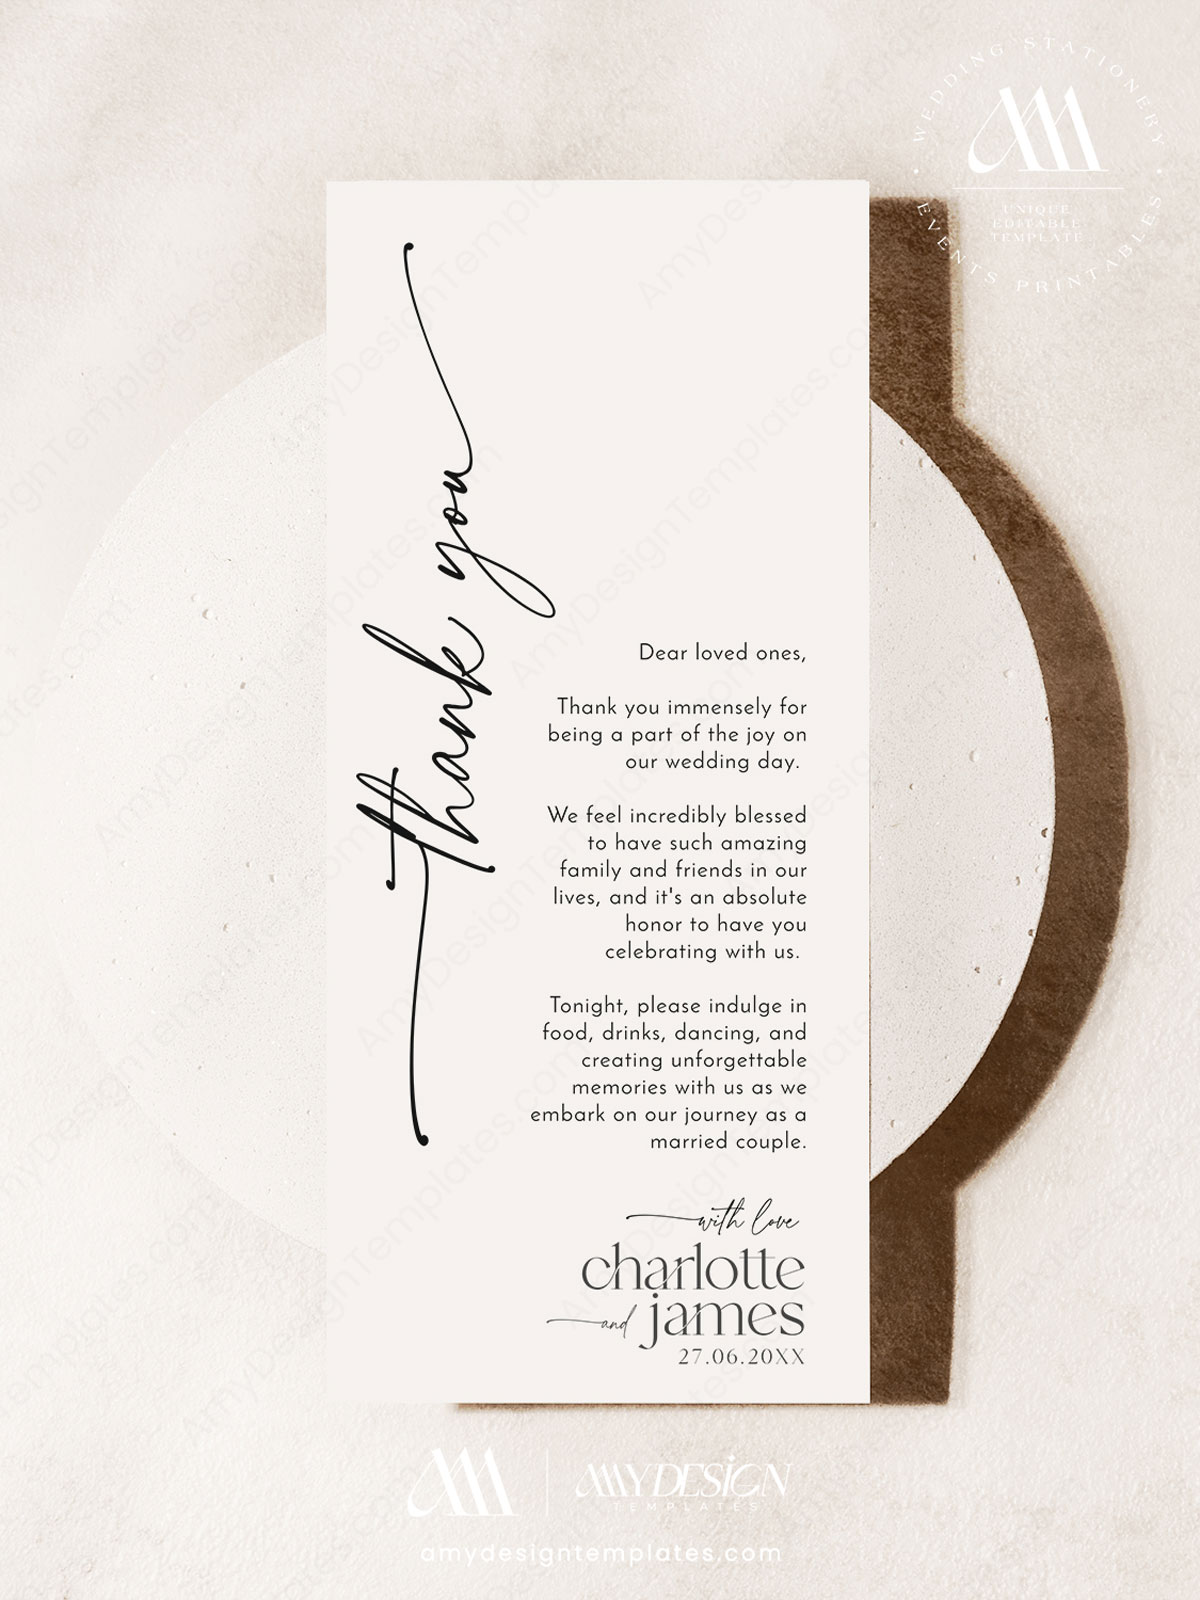 WEDDING STATIONERY
UNIQUE
EDITABLE
TEMPLATE
EVENTS PRINTABLES
thank you
Dear loved ones,
Thank you immensely for
being a part of the joy on
our wedding day.
We feel incredibly blessed
to have such amazing
family and friends in our
lives, and it's an absolute
honor to have you
celebrating with us.
Tonight, please indulge in
food, drinks, dancing, and
creating unforgettable
memories with us as we
embark on our journey as a
married couple.
with love
charlotte
and james
27.06.20XX
AMYDESIGN
TEMPLATES
amydesigntemplates.com
AmyDesignTemplates.com